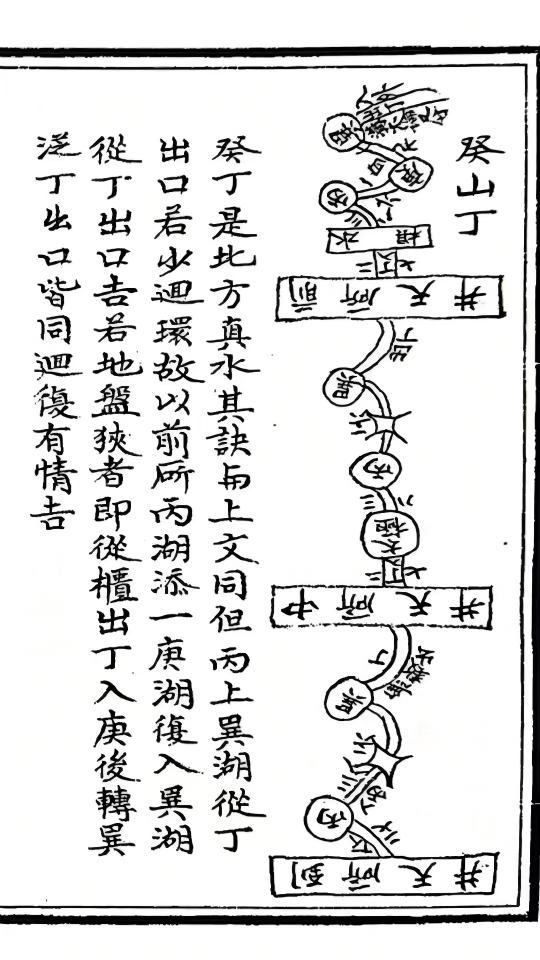 癸山丁
癸丁是北方真水其訣与上文同但丙上巽湖從丁
出口若少迴環故以前所丙湖添一庚湖復入巽湖
從丁出口吉若地盤狹者即從櫃出丁入庚後轉巽
從丁出口皆同迴復有情吉
庚
丙
水櫃
前所天井
出丁
巽
丙
太極
中所天井
丁
丙
到所天井